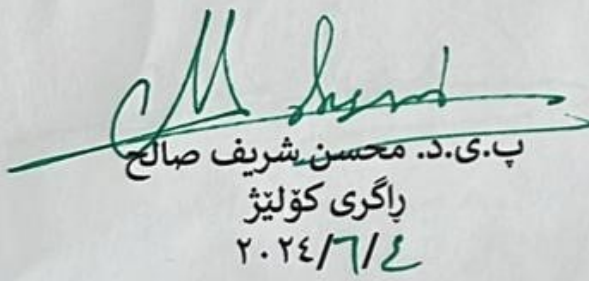 پ.ی.د. محسن شریف صالح
ڕاگری کۆلێژ
٢٠٢٤/٦/٤